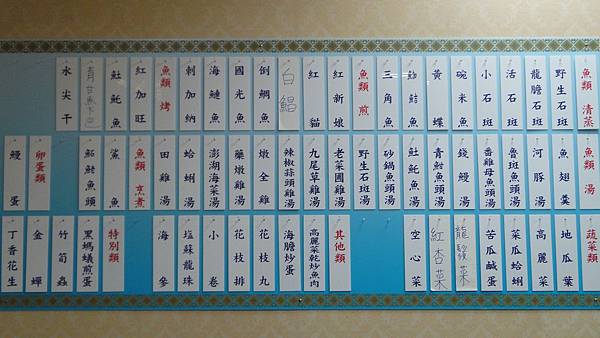 魚類 清蒸
野生石斑
龍膽石斑
活石斑
小石斑
碗米魚
黃蝶
魚
三角魚
魚類 煎
紅新娘
紅貓
白鯧
倒鯛魚
國光魚
海鱺魚
刺加納
魚類 烤
紅加旺
魟魠魚
水尖干
魚類 湯
魚翅羹
河豚湯
魯斑魚湯
番雞母魚頭湯
錢鰻湯
青魽魚頭湯
魟魠魚湯
砂鍋魚頭湯
野生石斑湯
老菜圃雞湯
九尾草雞湯
辣椒蒜頭雞湯
燉全雞
藥燉雞湯
澎湖海菜湯
蛤蜊湯
田雞湯
魚類 烹煮
鯊魚
魽魚頭
卵蛋類
鰻蛋
蔬菜類
地瓜葉
高麗菜
菜瓜蛤蜊
苦瓜鹹蛋
龍鬚菜
紅杏菜
空心菜
其他類
高麗菜乾炒魚肉
海膽炒蛋
花枝丸
花枝排
小卷
塩蘇龍珠
海參
特別類
黑螞蟻煎蛋
竹筍蟲
金蟬
丁香花生